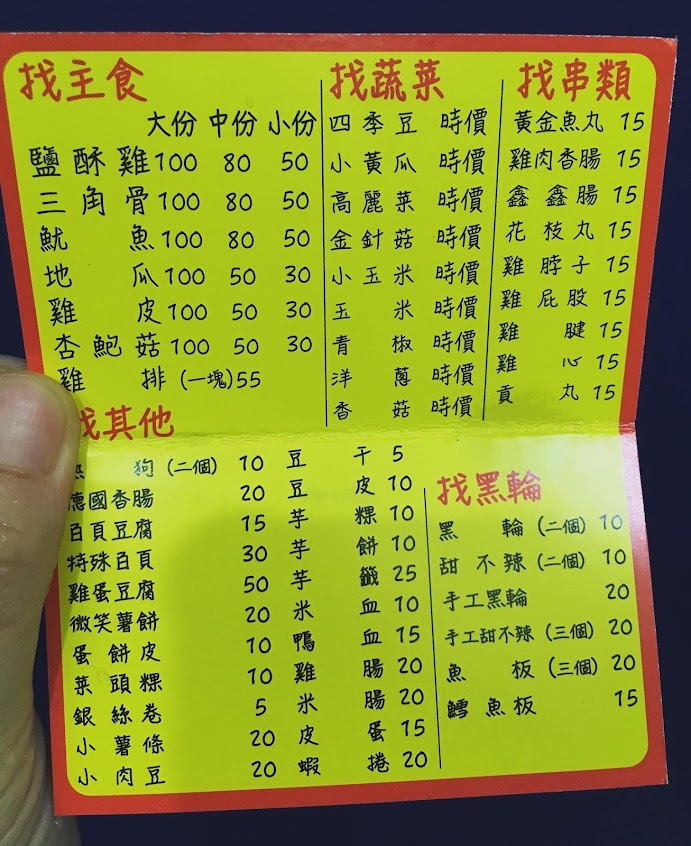 找主食
大份 中份 小份
鹽酥雞 100 80 50
三角骨 100 80 50
魷魚 100 80 50
地瓜 100 50 30
雞皮 100 50 30
杏鮑菇 100 50 30
雞排 (一塊) 55
找蔬菜
四季豆 時價
小黃瓜 時價
高麗菜 時價
金針菇 時價
小玉米 時價
玉米 時價
青椒 時價
洋蔥 時價
香菇 時價
找串類
黃金魚丸 15
雞肉香腸 15
鑫鑫腸 15
花枝丸 15
雞脖子 15
雞屁股 15
雞腱 15
雞心 15
貢丸 15
找其他
熱狗 (二個) 10
德國香腸 20
百頁豆腐 15
特殊百頁 30
雞蛋豆腐 50
微笑薯餅 20
蛋餅皮 10
菜頭粿 10
銀絲卷 5
小薯條 20
小肉豆 20
豆干 5
豆皮 10
芋粿 10
芋餅 10
芋籤 25
米血 10
鴨血 15
雞腸 20
米腸 20
皮蛋 15
蝦捲 20
找黑輪
黑輪 (二個) 10
甜不辣 (二個) 10
手工黑輪 20
手工甜不辣 (三個) 20
魚板 (三個) 20
鱈魚板 15